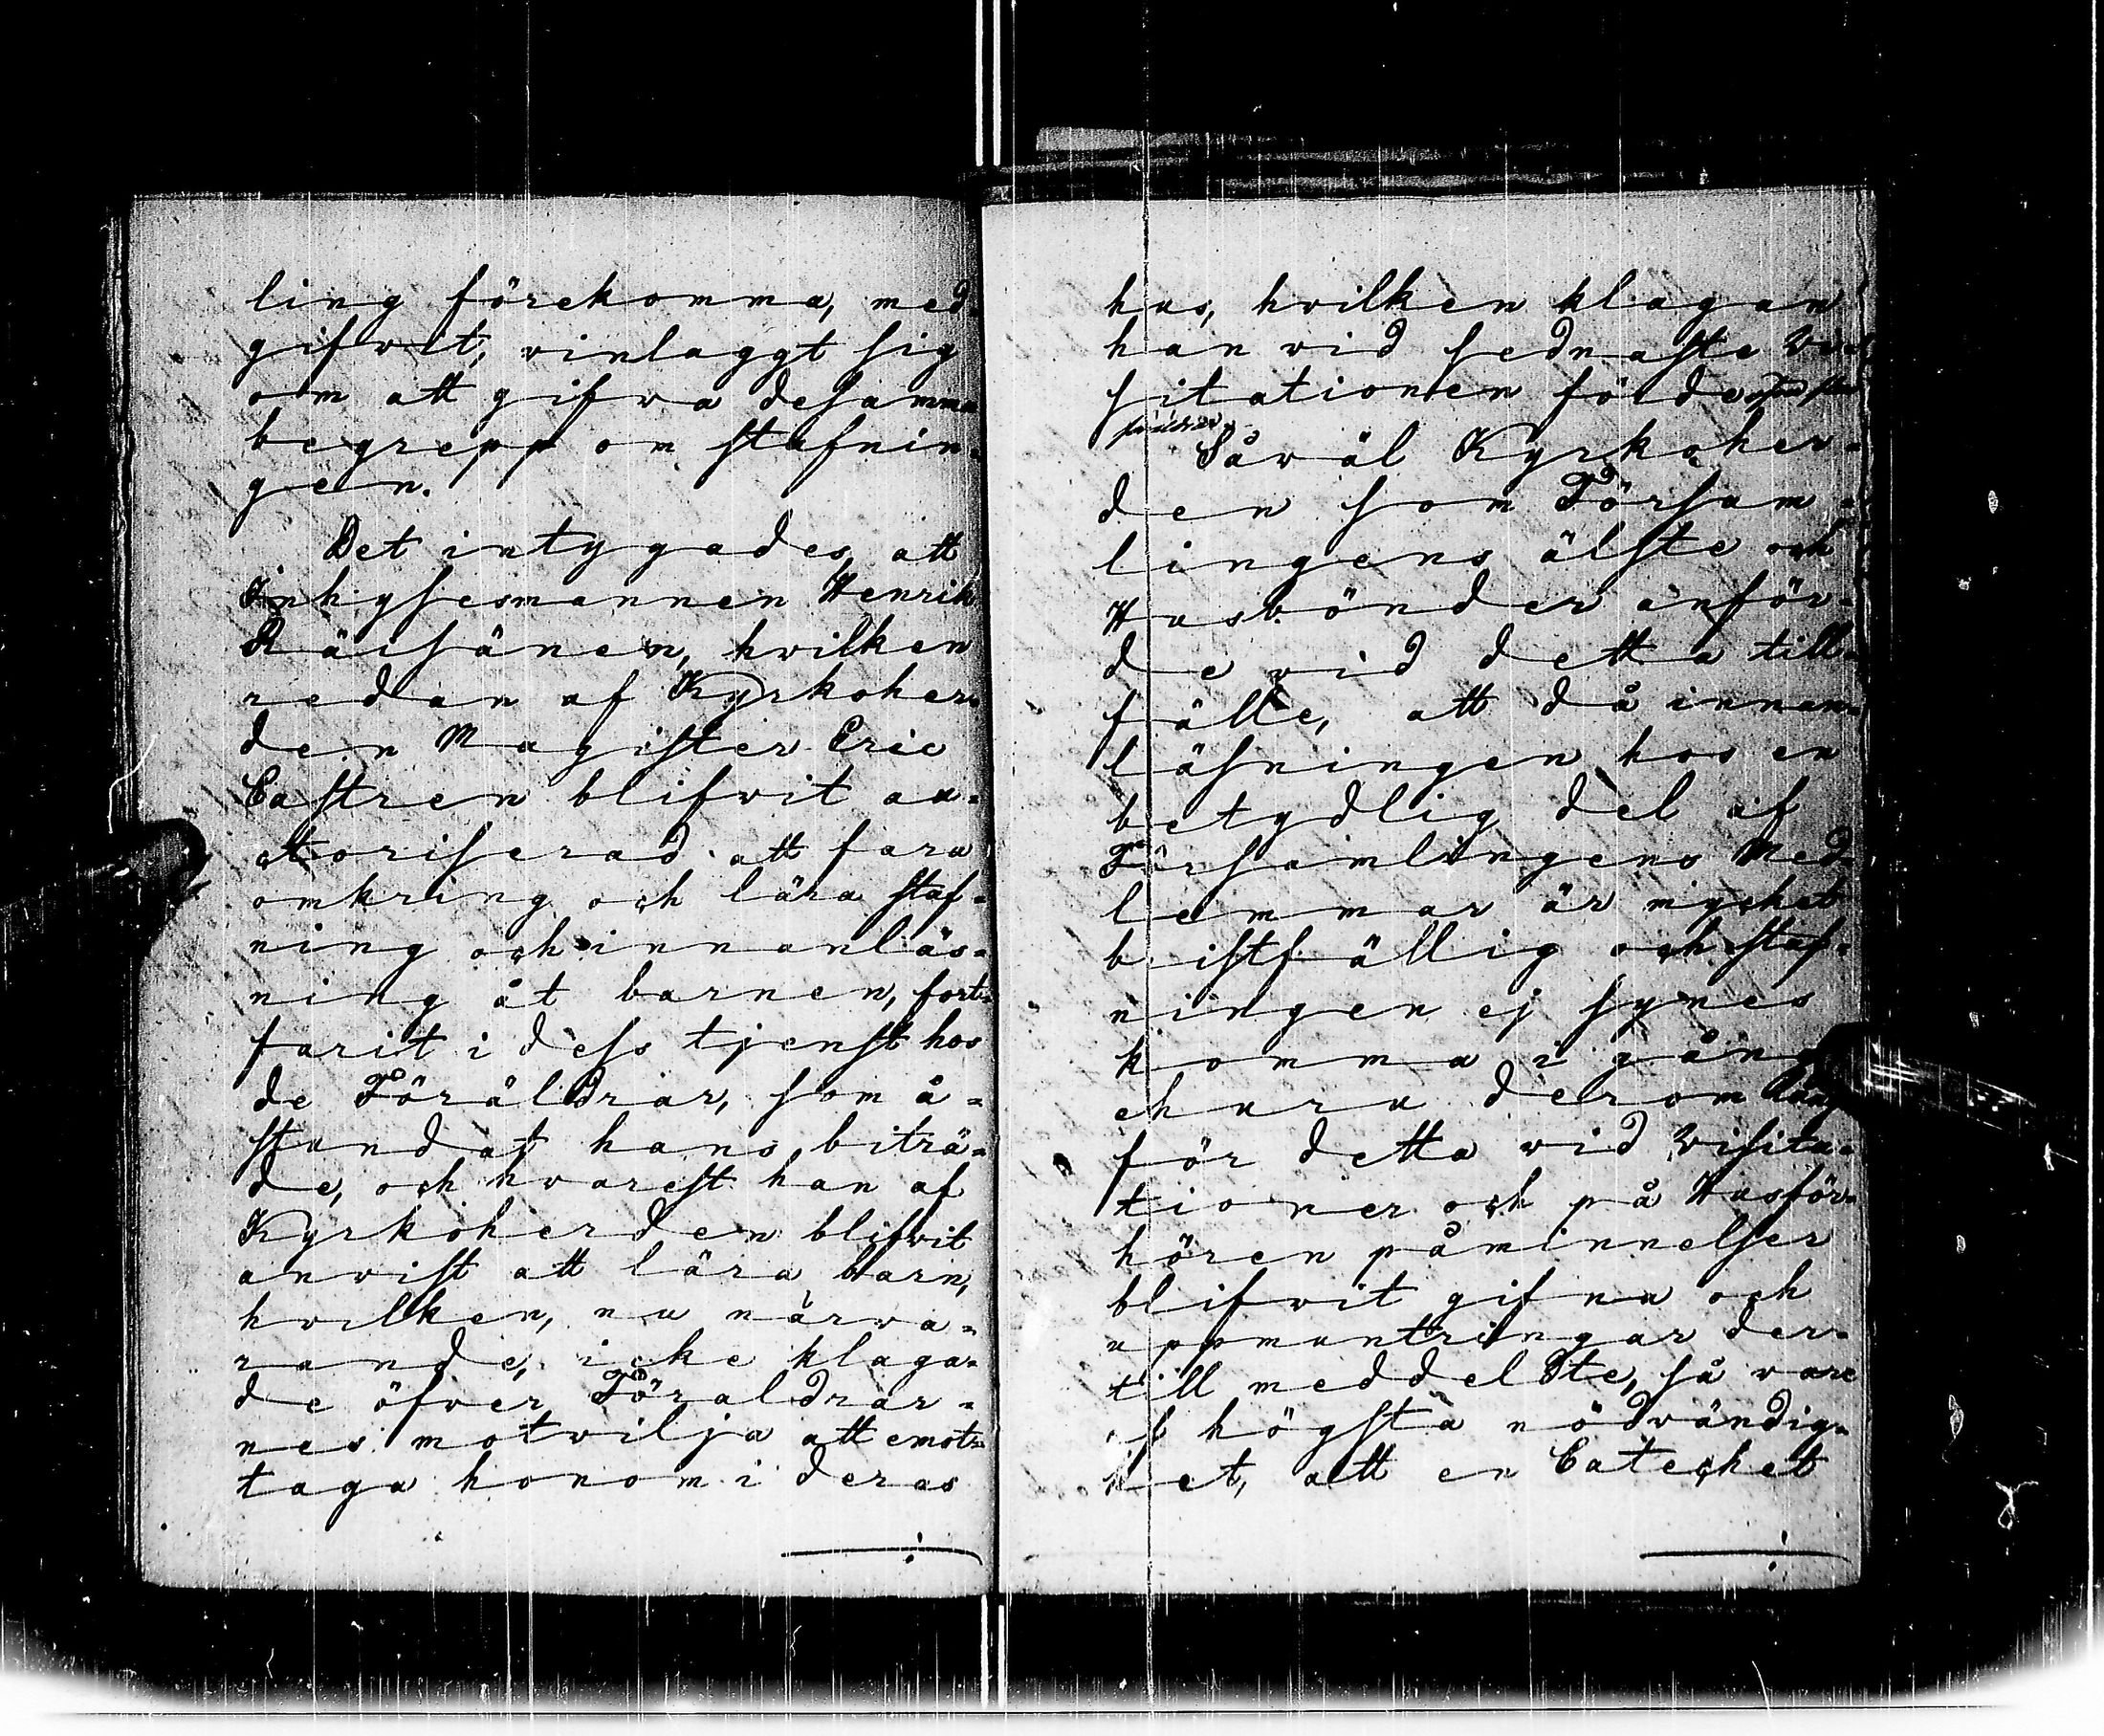 ling förekomma, med-
gifvit, vinlaggt sig
om att gifva desamma
begrepp om stafnin-
gen.
Det intygades, att
Inhysesmannen Henrik
Räisänen, hvilken
redan af Kyrkoher-
den Magister Eric
Castren blifvit au-
ctoriserad att fara
omkring och lära staf-
ning och innanläs-
ning åt barnen, fort-
farit i dess tjenst hos
de Föräldrar, som å-
stundat hans biträ-
de, och hvarest han af
Kyrkoherden blifvit
anvist att lära barn,
hvilken, nu närva-
rande, icke klaga-
de öfver Föräldrar-
nes motvilja att emot-
taga honom i deras
hus, hvilken klagan
han vid sednaste Vi-
sitationen förde
Såväl Kyrkoher-
den som Försam-
lingens älste och
Husbönder anför-
de vid detta till-
fälle, att då innan-
läsningen hos en
betydlig del af
Församlingens Med-
lemmar är mycket
bristfällig och staf-
ningen ej synes
komma i gång
ehuru derom
för detta vid Visita-
tioner och på Husför-
hören påminnelser
blifvit gifna och
uppmuntringar der-
till meddelste, så vare
af högsta nödvändig-
het, att en Catechet